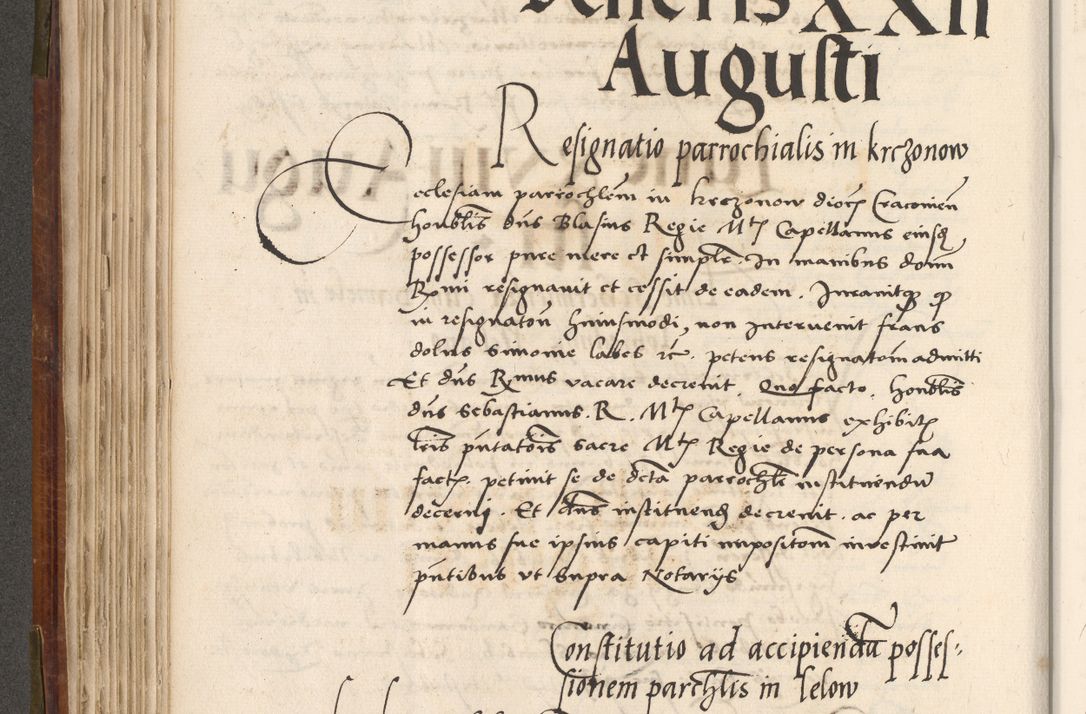 Veneris XXII
Augusti
Resignatio parrochialis in krczonow
Ecclesiam parrochlem in krczonow dioc Cracovien
honblis dns Blasius Regie Mtis Capellanus eiusq
possessor pure mere et simplr. In manibus domi
Rxmi resignavit et cessit de eadem. Iuravitq q
in resignatōn huiusmodi, non intervenit fraus
dolus simonie labes &c. petens resignatōm admitti
Et dns Rxmus vacare decrevit. Quo facto, honblis
dns Sebastianus. R. Mtis Capellanus exhibitis
lris pntatōis sacre Mtis Regie de persona sua
factis. petivit se de dcta parrochli instituendū
decerni. Et dns instituend decrevit. ac per
manus sue ipsius capiti impositōm investivit
pntibus vt supra Notarijs
Constitutio ad accipiendā posses-
sionem parchlis in lelow